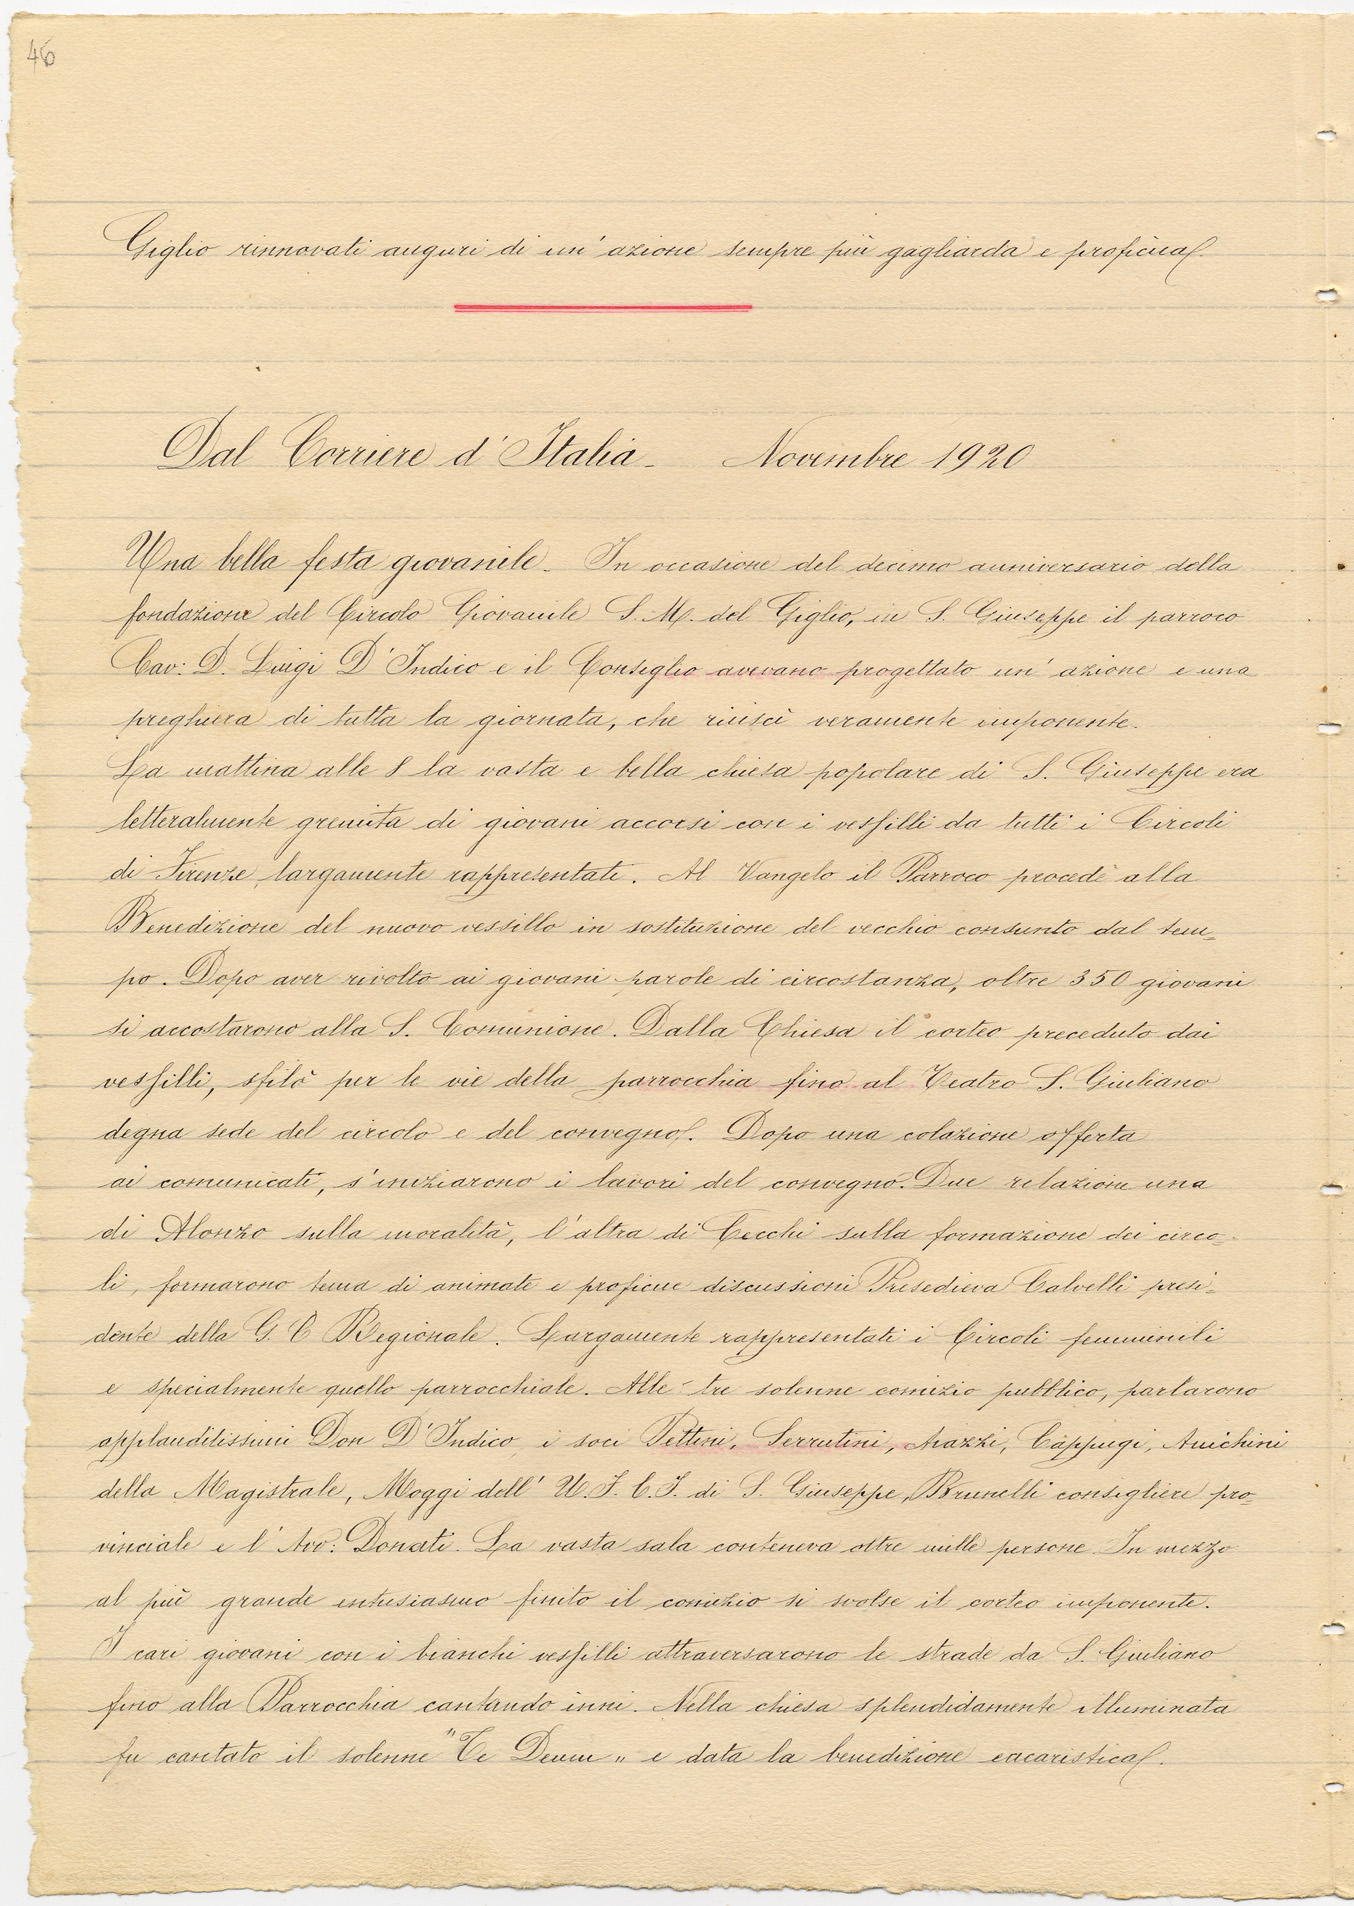 46
Giglio rinnovati auguri di un' azione sempre più gagliarda e proficua.
Dal Corriere d' Italia - Novembre 1920
Una bella festa giovanile - In occasione del decimo anniversario della
fondazione del Circolo Giovanile S. M. del Giglio, in S. Giuseppe il parroco
Cav: D. Luigi D' Indico e il Consiglio avevano progettato un' azione e una
preghiera di tutta la giornata, che riuscì veramente imponente.
La mattina alle 8 la vasta e bella chiesa popolare di S. Giuseppe era
letteralmente gremita di giovani accorsi con i vessilli da tutti i Circoli
di Firenze, largamente rappresentati. Al Vangelo il Parroco procedè alla
Benedizione del nuovo vessillo in sostituzione del vecchio consunto dal tem=
po. Dopo aver rivolto ai giovani parole di circostanza, oltre 350 giovani
si accostarono alla S. Comunione. Dalla Chiesa il corteo preceduto dai
vessilli, sfilò per le vie della parrocchia fino al Teatro S. Giuliano
degna sede del circolo e del convegno. Dopo una colazione offerta
ai comunicati, s' iniziarono i lavori del convegno. Due relazioni una
di Alonzo sulla moralità, l' altra di Cecchi sulla formazione dei circo=
li, formarono tema di animate e proficue discussioni Presedieva Calvelli presi=
dente della G. C Regionale. Largamente rappresentati i Circoli femminili
e specialmente quello parrocchiale. Alle tre solenne comizio pubblico, parlarono
applauditissimi Don D' Indico i soci Pettini, Serrutini, Mazzi, Cappugi, Anichini
della Magistrale, Moggi dell' U. F. C. I. di S. Giuseppe, Brunelli consigliere pro=
vinciale e l' Avv: Donati. La vasta sala conteneva oltre mille persone. In mezzo
al più grande entusiasmo finito il comizio si svolse il corteo imponente.
I cari giovani con i bianchi vessilli attraversarono le strade da S. Giuliano
fino alla Parrocchia cantando inni. Nella chiesa splendidamente illuminata
fu cantato il solenne "Te Deum" e data la benedizione eucaristica.